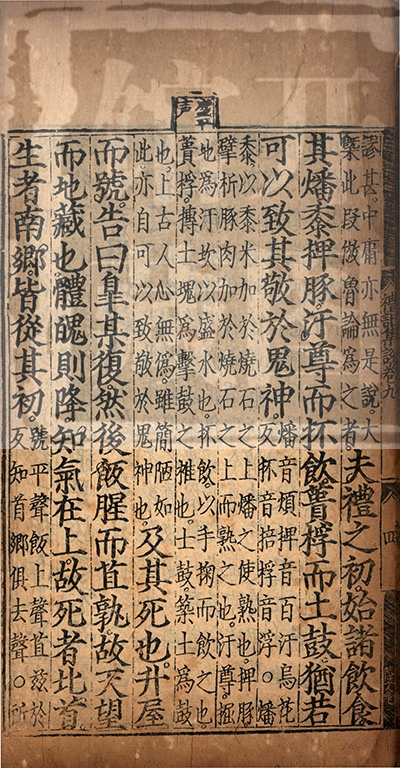 謬甚中庸亦無是說大
槩此段倣魯論爲之者
夫禮之初始諸飲食
其燔黍捭豚汙尊而抔飲蕢桴而土鼓猶若
可以致其敬於鬼神
燔音煩捭音百汙烏花
反抔音掊桴音浮○燔
黍以黍米加於燒石之上燔之使熟也捭豚
擘析豚肉加於燒石之上而熟之也汙尊掘
地爲汙坎以盛水也抔飲以手掬而飲之也
蕢桴摶土塊爲擊鼓之椎也土鼓築土爲鼓
也上古人心無爲雖簡陋如
此亦自可以致敬於鬼神也
及其死也升屋
而號告曰皐某復然後飯腥而苴孰故天望
而地藏也體魄則降知氣在上故死者北首
生者南鄉皆從其初
號平聲飯上聲苴茲於
反知首鄉俱去聲○所
禮記集說卷九
四